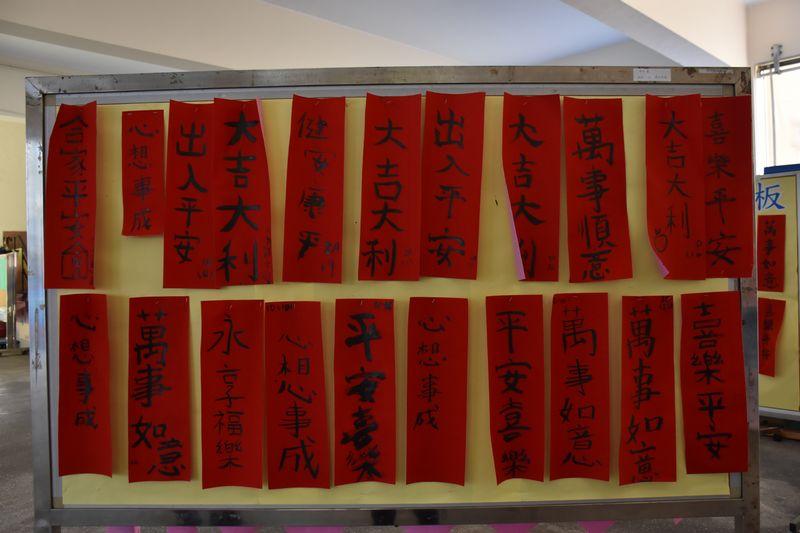 合家平安
心想事成
出入平安
大吉大利
健安康平
大吉大利
出入平安
大吉大利
萬事順意
大吉大利
喜樂平安
心想事成
萬事如意
永享福樂
心想事成
平安喜樂
心想事成
平安喜樂
萬事如意
萬事如意
喜樂平安
板
萬事如意